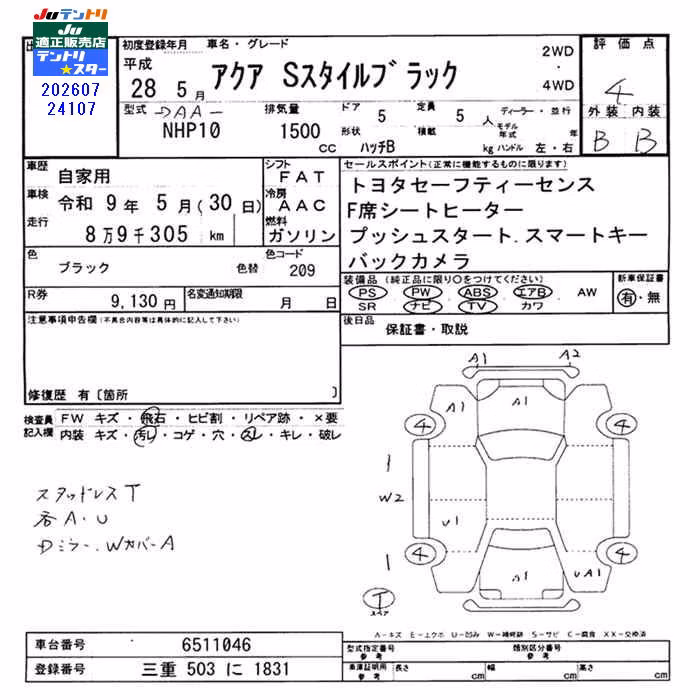 JUテントリ
JU
適正販売店
テントリ
★スター
202607
24107
初度登録年月 車名・グレード
平成
28 5月 アクア Sスタイルブラック 2WD・4WD
評価点
4
外装 内装
B B
型式 DAA-
NHP10
排気量
1500 cc
ドア 5
形状 ハッチB
定員 5 人
積載 kg
ディーラー・並行
モデル年式 年
ハンドル 左・右
車歴 自家用
車検 令和 9年 5月(30日)
走行 8万9千305 km
シフト FAT
冷房 AAC
燃料 ガソリン
色 ブラック 色替
色コード 209
R券 9,130円
名変通知期限 月 日
セールスポイント(正常に機能するものに限ります)
トヨタセーフティーセンス
F席シートヒーター
プッシュスタート.スマートキー
バックカメラ
装備品(純正品に限り○をつけてください)
PS PW ABS エアB AW
SR ナビ TV カワ
新車保証書
有・無
後日品 保証書・取説
注意事項申告欄(不具合内容等は具体的に記入して下さい)
修復歴 有〔箇所 〕
検査員記入欄
FW キズ・飛石・ヒビ割・リペア跡・×要
内装 キズ・汚レ・コゲ・穴・スレ・キレ・破レ
スタッドレスT
各A・U
Dミラー.WカバーA
A1 A2
A1 A1
4 4
W2
U1
4 4
A1 UA1
T
スペア
A-キズ E-エクボ U-凹み W-補修跡 S-サビ C-腐食 XX-交換済
車台番号 6511046
登録番号 三重 503 に 1831
型式指定番号 参考
類別区分番号 参考
車庫証明用 参考 長さ cm 幅 cm 高さ cm